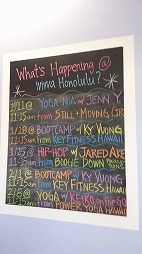 What's Happening @
ivivva Honolulu?
1/11 @ YOGA-NIA w/ JENNY
11:15am from STILL & MOVING CTR
1/18 @ BOOTCAMP w/ KY VUONG
11:15am from KEY FITNESS HAWAII
1/25 @ HIP-HOP w/ JARED AKE
11:15am from BOOGIE DOWN
2/1 @ BOOTCAMP w/ KY VUONG
11:15am from KEY FITNESS HAWAII
YOGA w/ KEIKO on the GO
11:15am from POWER YOGA HAWAII